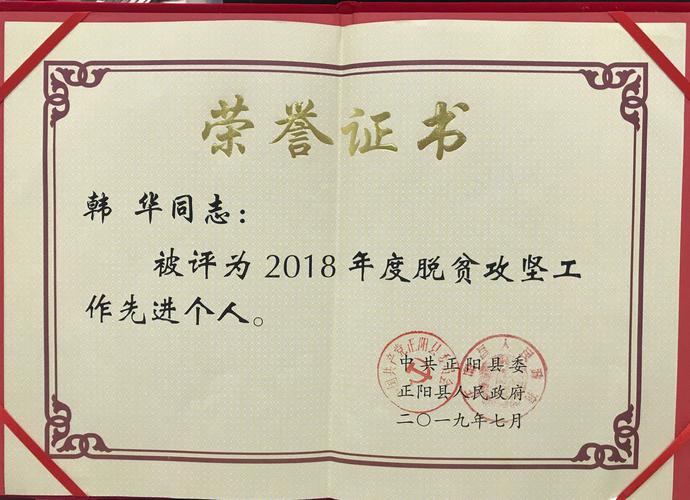 荣誉证书
韩 华同志：
被评为2018年度脱贫攻坚工
作先进个人。
中共正阳县委
正阳县人民政府
二〇一九年七月